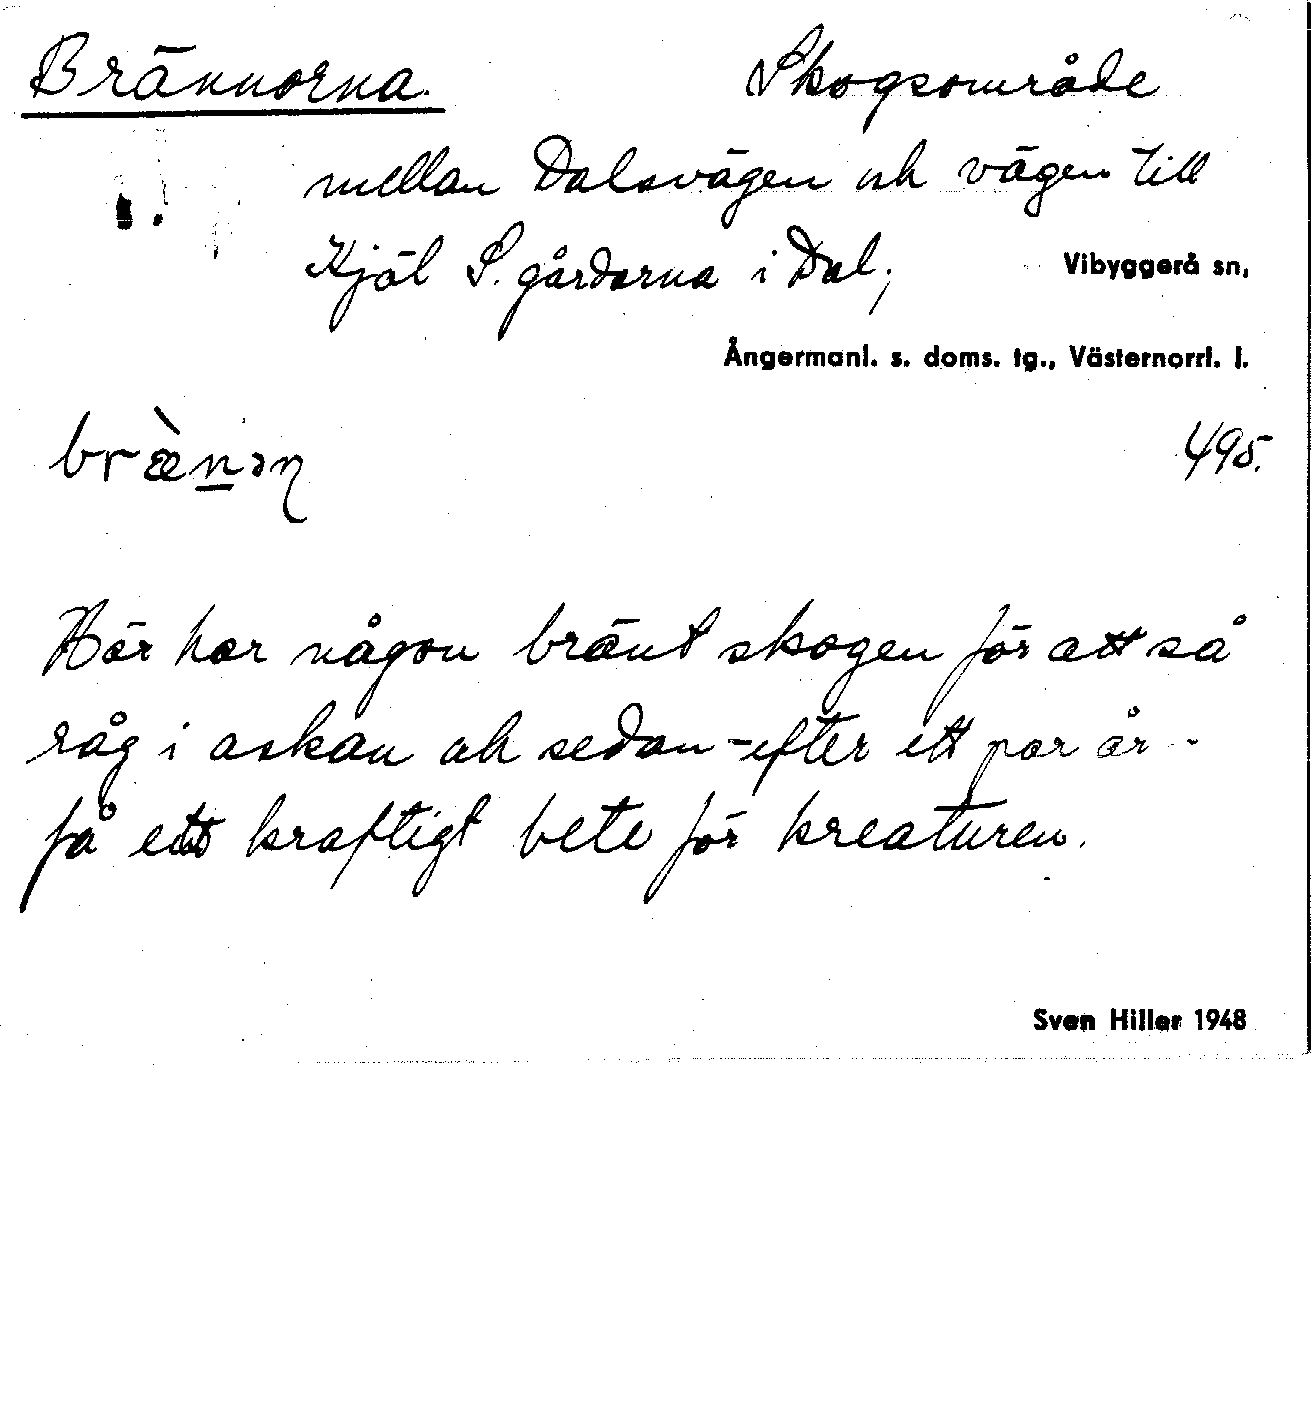 Brännorna. Skogsområde
mellan Dalsvägen och vägen till
Kjäl S. gårdarna i Dal; Vibyggerå sn,
Ångermanl. s. doms. tg., Västernorrl. l.
bræ̀n̲əɳ 495.
Här har någon bränt skogen för att så
råg i askan och sedan - efter ett par år -
få ett kraftigt bete för kreaturen.
Sven Hiller 1948